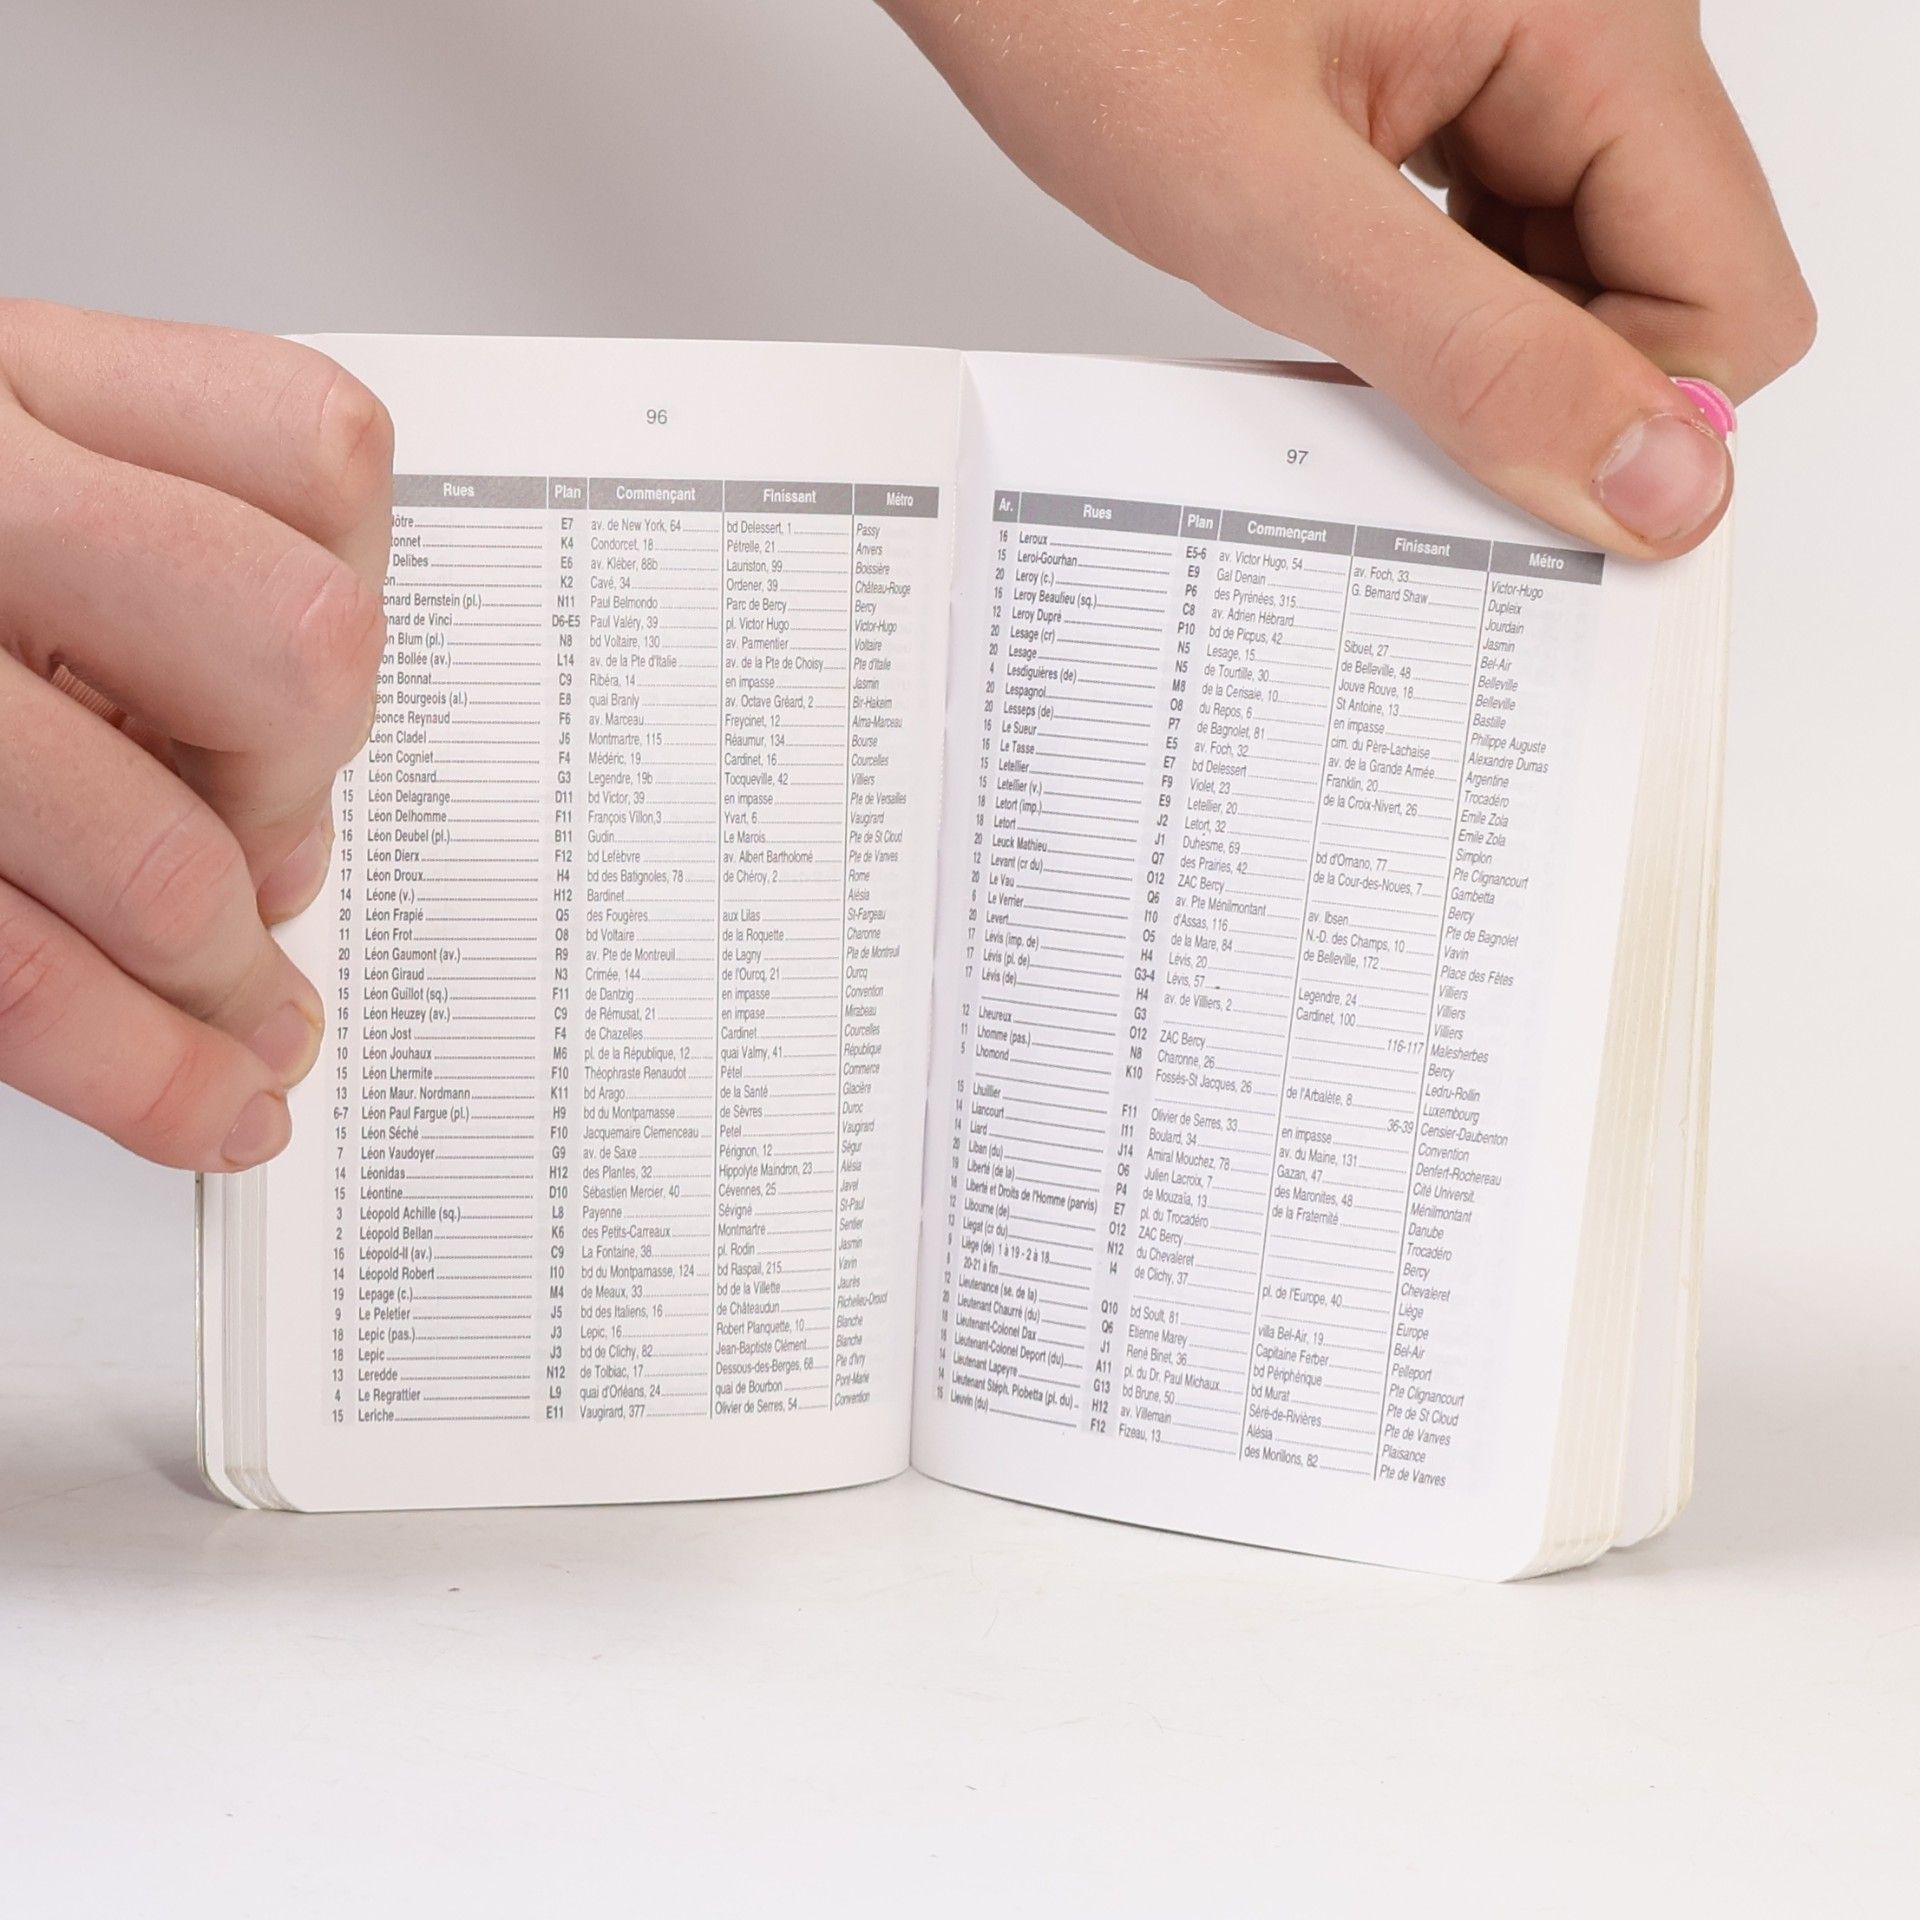 96
Rues Plan Commençant Finissant Métro
E7 av. de New York, 64 bd Delessert, 1 Passy
K4 Condorcet, 18 Pétrelle, 21 Anvers
Delibes E6 av. Kléber, 88b Launston, 99 Boissière
K2 Cavé, 34 Ordener, 39 Château-Rouge
Bernstein (pl.) N11 Paul Belmondo Parc de Bercy Bercy
de Vinci D6-E5 Paul Valéry, 39 pl. Victor Hugo Victor-Hugo
Blum (pl.) N8 bd Voltaire, 130 av. Parmentier Voltaire
Bollée (av.) L14 av. de la Pte d'Italie av. de la Pte de Choisy Pte d'Italie
Bonnat C9 Ribéra, 14 en impasse Jasmin
Bourgeois (al.) E8 quai Branly av. Octave Gréard, 2 Bir-Hakeim
Reynaud F6 av. Marceau Freycinet, 12 Alma-Marceau
Léon Cladel J6 Montmartre, 115 Réaumur, 134 Bourse
Léon Cogniet F4 Médéric, 19 Cardinet, 16 Courcelles
17 Léon Cosnard G3 Legendre, 19b Tocqueville, 42 Villiers
15 Léon Delagrange D11 bd Victor, 39 en impasse Pte de Versailles
15 Léon Delhomme F11 François Villon,3 Yvart, 6 Vaugirard
16 Léon Deubel (pl.) B11 Gudin Le Marois Pte de St Cloud
15 Léon Dierx F12 bd Lefebvre av. Albert Bartholomé Pte de Vanves
17 Léon Droux H4 bd des Batignoles, 78 de Chéroy, 2 Rome
14 Léone (v.) H12 Bardinet Alésia
20 Léon Frapié Q5 des Fougères aux Lilas St-Fargeau
11 Léon Frot O8 bd Voltaire de la Roquette Charonne
20 Léon Gaumont (av.) R9 av. Pte de Montreuil de Lagny Pte de Montreuil
19 Léon Giraud N3 Crimée, 144 de l'Ourcq, 21 Ourcq
15 Léon Guillot (sq.) F11 de Dantzig en impasse Convention
16 Léon Heuzey (av.) C9 de Rémusat, 21 en impase Mirabeau
17 Léon Jost F4 de Chazelles Cardinet Courcelles
10 Léon Jouhaux M6 pl. de la République, 12 quai Valmy, 41 République
15 Léon Lhermite F10 Théophraste Renaudot Pétel Commerce
13 Léon Maur. Nordmann K11 bd Arago de la Santé Glacière
6-7 Léon Paul Fargue (pl.) H9 bd du Montparnasse de Sèvres Duroc
15 Léon Séché F10 Jacquemaire Clemenceau Petel Vaugirard
7 Léon Vaudoyer G9 av. de Saxe Pérignon, 12 Ségur
14 Léonidas H12 des Plantes, 32 Hippolyte Maindron, 23 Alésia
15 Léontine D10 Sébastien Mercier, 40 Cévennes, 25 Javel
3 Léopold Achille (sq.) L8 Payenne Sévigné St-Paul
2 Léopold Bellan K6 des Petits-Carreaux Montmartre Sentier
16 Léopold-II (av.) C9 La Fontaine, 38 pl. Rodin Jasmin
14 Léopold Robert I10 bd du Montparnasse, 124 bd Raspail, 215 Vavin
19 Lepage (c.) M4 de Meaux, 33 bd de la Villette Jaurès
9 Le Peletier J5 bd des Italiens, 16 de Châteaudun Richelieu-Drouot
18 Lepic (pas.) J3 Lepic, 16 Robert Planquette, 10 Blanche
18 Lepic J3 bd de Clichy, 82 Jean-Baptiste Clément Blanche
13 Leredde N12 de Tolbiac, 17 Dessous-des-Berges, 68 Pte d'Ivry
4 Le Regrattier L9 quai d'Orléans, 24 quai de Bourbon Pont-Marie
15 Leriche E11 Vaugirard, 377 Olivier de Serres, 54 Convention
97
Ar. Rues Plan Commençant Finissant Métro
16 Leroux E5-6 av. Victor Hugo, 54 av. Foch, 33 Victor-Hugo
15 Leroi-Gourhan E9 Gal Denain G. Bernard Shaw Dupleix
20 Leroy (c.) P6 des Pyrénées, 315 Jourdain
16 Leroy Beaulieu (sq.) C8 av. Adrien Hébrard Jasmin
12 Leroy Dupré P10 bd de Picpus, 42 Sibuet, 27 Bel-Air
20 Lesage (cr) N5 Lesage, 15 de Belleville, 48 Belleville
20 Lesage N5 de Tourtille, 30 Jouye Rouve, 18 Belleville
4 Lesdiguières (de) M8 de la Cerisaie, 10 St Antoine, 13 Bastille
20 Lespagnol O8 du Repos, 6 en impasse Philippe Auguste
20 Lesseps (de) P7 de Bagnolet, 81 cim. du Père-Lachaise Alexandre Dumas
16 Le Sueur E5 av. Foch, 32 av. de la Grande Armée Argentine
16 Le Tasse E7 bd Delessert Franklin, 20 Trocadéro
15 Letellier F9 Violet, 23 de la Croix-Nivert, 26 Emile Zola
15 Letellier (v.) E9 Letellier, 20 Emile Zola
18 Letort (imp.) J2 Letort, 32 Simplon
18 Letort J1 Duhesme, 69 bd d'Ornano, 77 Pte Clignancourt
20 Leuck Mathieu Q7 des Prairies, 42 de la Cour-des-Noues, 7 Gambetta
12 Levant (cr du) O12 ZAC Bercy Bercy
20 Le Vau Q6 av. Pte Ménilmontant av. Ibsen Pte de Bagnolet
6 Le Verrier I10 d'Assas, 116 N.-D. des Champs, 10 Vavin
20 Levert O5 de la Mare, 84 de Belleville, 172 Place des Fêtes
17 Lévis (imp. de) H4 Lévis, 20 Villiers
17 Lévis (pl. de) G3-4 Lévis, 57 Legendre, 24 Villiers
17 Lévis (de) H4 av. de Villiers, 2 Cardinet, 100 Villiers
G3 116-117 Malesherbes
12 Lheureux O12 ZAC Bercy Bercy
11 Lhomme (pas.) N8 Charonne, 26 Ledru-Rollin
5 Lhomond K10 Fossés-St Jacques, 26 de l'Arbalète, 8 Luxembourg
36-39 Censier-Daubenton
15 Lhuillier F11 Olivier de Serres, 33 en impasse Convention
14 Liancourt I11 Boulard, 34 av. du Maine, 131 Denfert-Rochereau
14 Liard J14 Amiral Mouchez, 78 Gazan, 47 Cité Universit.
20 Liban (du) O6 Julien Lacroix, 7 des Maronites, 48 Ménilmontant
19 Liberté (de la) P4 de Mouzaïa, 13 de la Fraternité Danube
16 Liberté et Droits de l'Homme (parvis) E7 pl. du Trocadéro Trocadéro
12 Libourne (de) O12 ZAC Bercy Bercy
13 Liegat (cr du) N12 du Chevaleret Chevaleret
9 Liège (de) 1 à 19 - 2 à 18 I4 de Clichy, 37 pl. de l'Europe, 40 Liège
8 20-21 à fin Europe
12 Lieutenance (se. de la) Q10 bd Soult, 81 villa Bel-Air, 19 Bel-Air
20 Lieutenant Chauré (du) Q6 Etienne Marey Capitaine Ferber Pelleport
18 Lieutenant-Colonel Dax J1 René Binet, 36 bd Périphérique Pte Clignancourt
16 Lieutenant-Colonel Deport (du) A11 pl. du Dr. Paul Michaux bd Murat Pte de St Cloud
14 Lieutenant Lapeyre G13 bd Brune, 50 Séré-de-Rivières Pte de Vanves
14 Lieutenant Stéph. Piobetta (pl. du) H12 av. Villemain Alésia Plaisance
15 Lieuvin (du) F12 Fizeau, 13 des Morillons, 82 Pte de Vanves